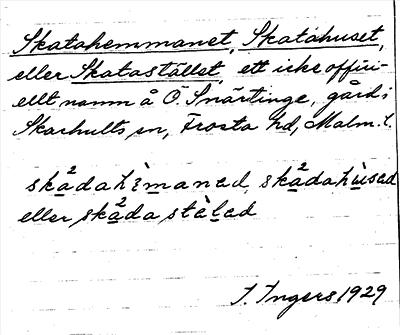 Skatahemmanet, Skatahuset,
eller Skatastället, ett icke offici-
ellt namn å Ö. Snärtinge, gård i
Skarhults sn, Frosta hd, Malm. l.
ska²dahèmanəd, ska²dahùsəd
eller ska²dastàləd
I. Ingers 1929